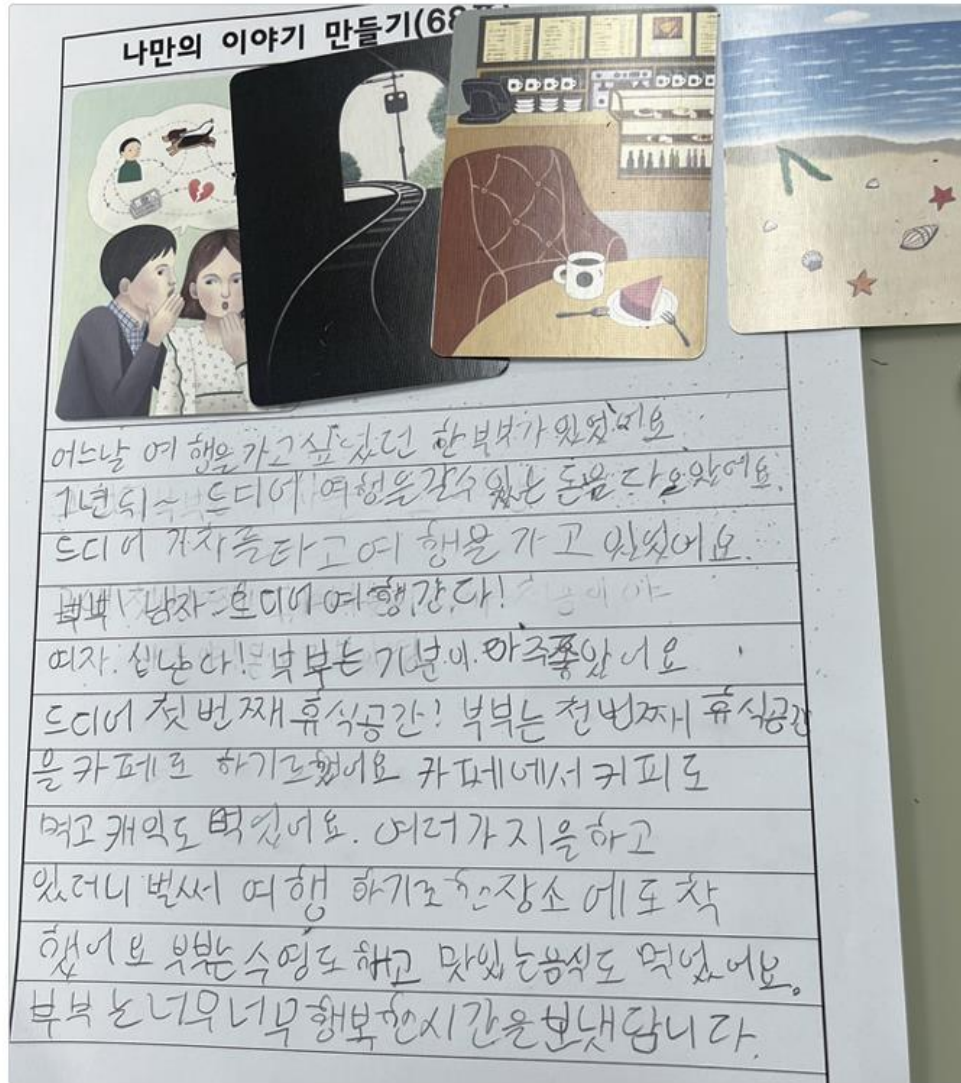 나만의 이야기 만들기(68
어느날 여행을가고싶었던 한부부가 있었어요
1년뒤~ 드디어 여행을갈수 있는 돈을 다모았어요.
드디어 기차를타고여 행을 가고 있었어요.
남자 드디어여행간다!
여자. 신난다! 부부는 기분이. 아주좋았어요
드디어 첫번째휴식공간! 부부는 첫번째 휴식공간
을카페로 하기로했어요 카페에서커피도
먹고 캐익도 먹었어요. 여러가지을하고
있더니 벌써 여행 하기로한장소에도착
했어요 부부는수영도 하고 맛있는음식도 먹었어요.
부부는너무너무행복한시간을보냇답니다.